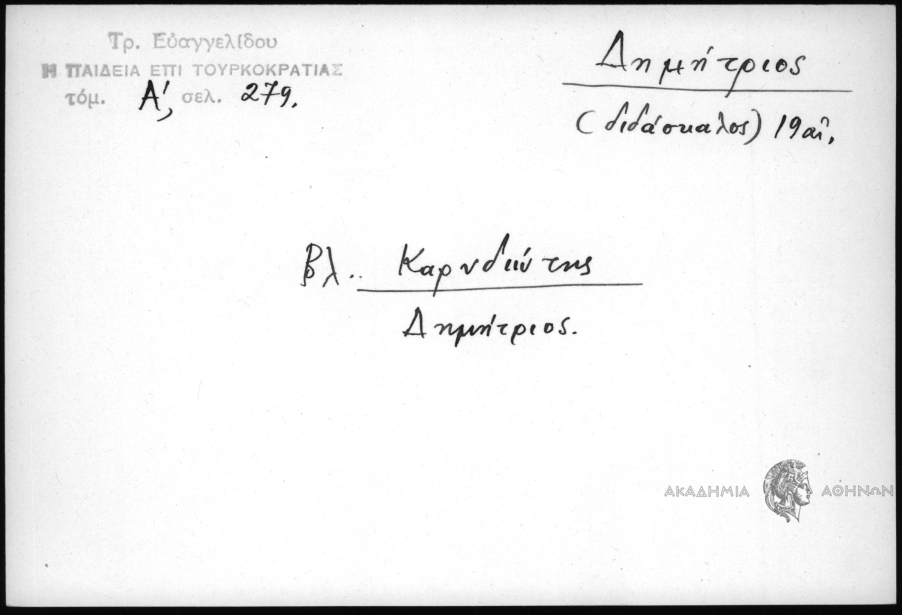 Τρ. Εὐαγγελίδου
Η ΠΑΙΔΕΙΑ ΕΠΙ ΤΟΥΡΚΟΚΡΑΤΙΑΣ
τόμ. Α', σελ. 279.
Δημήτριος
(διδάσκαλος) 19 αἰ.
Βλ.. Καρυδιώτης
Δημήτριος.
ΑΚΑΔΗΜΙΑ ΑΘΗΝΩΝ